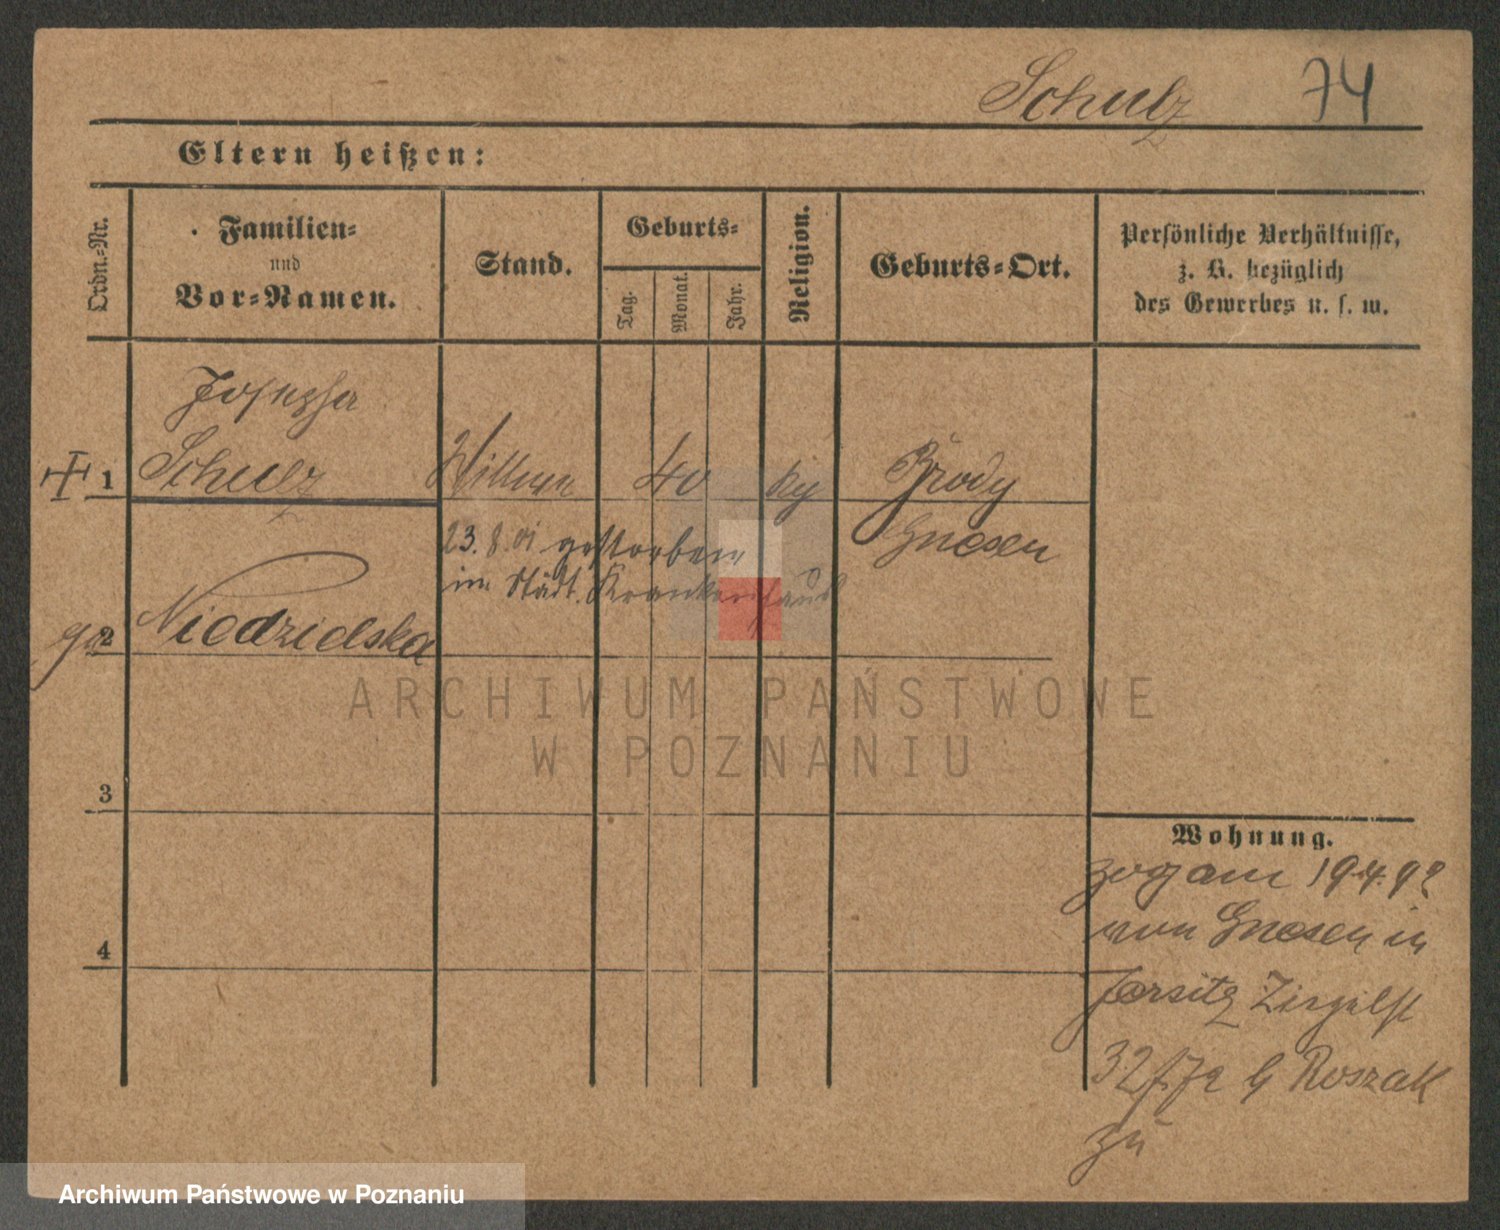 Schulz 74
Eltern heißen:
Ordn.-Nr.
Familien-
und
Vor-Namen.
Stand.
Geburts-
Tag.
Monat.
Jahr.
Religion.
Geburts-Ort.
Persönliche Verhältnisse,
z. B. bezüglich
des Gewerbes u. s. w.
Josepha
1 Schulz Wittwe 40 Brody
Gnesen
23.8.01 gestorben
im Städt. Krankenhaus
2 Niedzielska
ARCHIWUM PAŃSTWOWE
W POZNANIU
3
4
Wohnung.
zog am 19.4.92
von Gnesen in
Jersitz
32 Roszak
zu
Archiwum Państwowe w Poznaniu